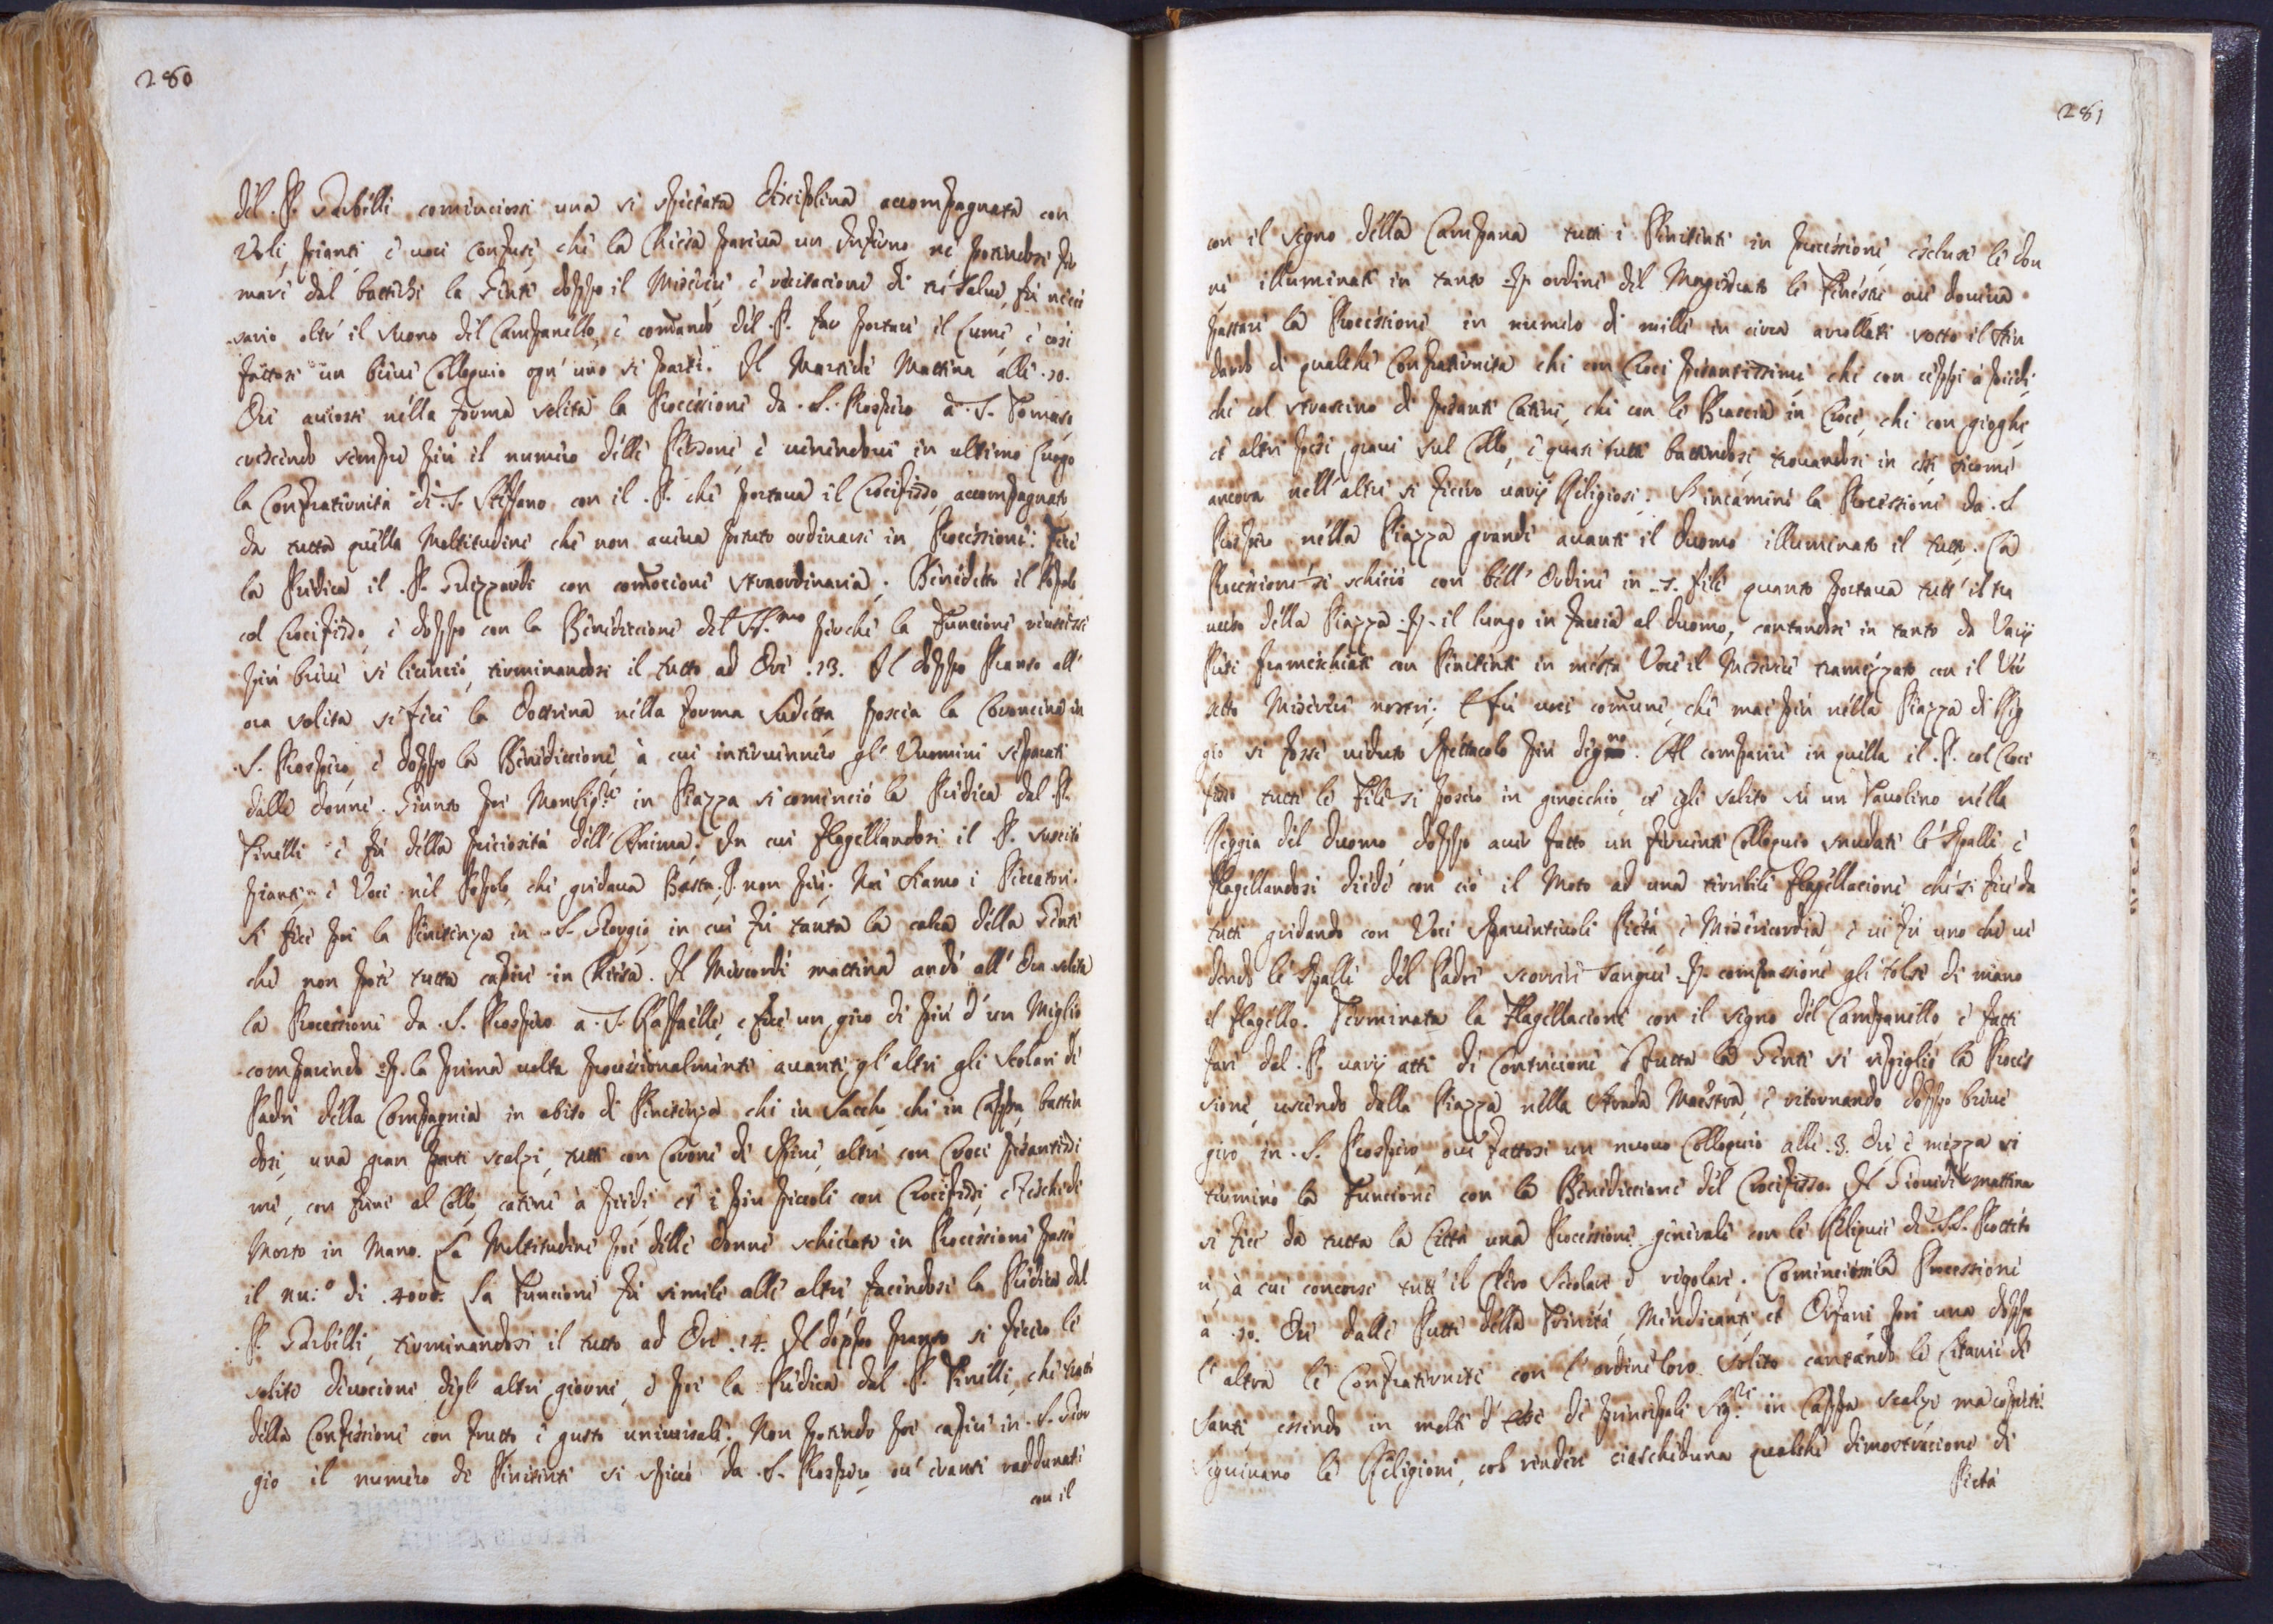 280
del P. Garbelli cominciossi una si spietata disciplina accompagnata con
Urli, pianti, e uoci confuse, che la Chiesa pareua un Inferno, ne potendosi fer
mare dal battersi la Gente doppo il Miserere, e recitacione di tre Salue, fù neces
sario oltr' il suono del Campanello, e comando del P. far portare il Lume, e così
fattosi un breue Colloquio ogn' uno si partì. Il Martedi Mattina alle 10.
Ore auiossi nella forma solita la Processione da S. Prospero à S. Tomaso,
crescendo sempre più il numero delle Persone, e uenendoui in ultimo luogo
la Confraternità di S. Steffano con il P. che portaua il Crocifisso, accompagnato
da tutta quella Moltitudine che non aueua potuto ordinarsi in Processione: Fece
la Predica il P. Guizzardi con comocione straordinaria; Benedetto il Popolo
col Crocifisso, e doppo con la Benediccione del SS.mo perche la Funcione riuscisse
più breue si licenciò, terminandosi il tutto ad Ore 13. Il doppo Pranso all'
ora solita si fece la Dottrina nella forma sudetta, poscia la Coroncina in
S. Prospero, e doppo la Benediccione, à cui interuennero gl' Uuomini separati
dalle donne. Giunto poi Monsig.re in Piazza si cominciò la Predica dal P.
Pinelli e fù della preciosità dell' Anima; In cui flagellandosi il P. suscitò
pianti e Voci nel Popolo, che gridaua Basta, P. non più; Noi siamo i Peccatori.
Si fece poi la Penitenza in S. Giorgio, in cui fù tanta la calca della Gente
che non potè tutta capire in Chiesa. Il Mercordì mattina andò all' Ora solita
la Processione da S. Prospero a S. Raffaelle, e fece un giro di più d' un Miglio,
comparendo p. la prima uolta processionalmente auanti gl' altri gli Scolari de
Padri della Compagnia in abito di Penitenza chi in Saccho, chi in Cappa, batten
dosi, una gran parte scalzi, tutti con Corone di Spine, altri con Croci pesantissi
me, con fune al Collo, catene à piedi, et i più piccoli con Crocifissi, e Teschi di
Morto in Mano. La Moltitudine poi delle donne schierate in Processione passò
il nu.o di 4000. La Funcione fù simile alle altre facendosi la Predica dal
P. Garbelli, terminandosi il tutto ad Ore 14. Il doppo pranso si fecero le
solite diuocioni degl' altri giorni, e poi la Predica dal P. Pinelli, che trattò
della Confessione con frutto, e gusto uniuersale; Non potendo poi capire in S. Gior
gio il numero de Penitenti si spiccò da S. Prospero, ou' eransi raddunati
con il
281
con il segno della Campana tutti i Penitenti in processione, escluse le don
ne illuminate in tanto p. ordine del Magistrato le Finestre oue doueua
passare la Processione in numero di mille in circa arollati sotto il Sten
dardo di qualche Confraternità chi con Croci pesantissime chi con ceppi à piedi,
chi col strascino di pesanti Catene, chi con le Braccia in Croce, chi con gioghi,
et altri pesi graui sul Collo, e quasi tutti battendosi, trouandosi in essi, sicome
ancora nell' altre si fecero uarij Religiosi. S' incaminò la Processione da S.
Prospero nella Piazza grande auanti il Duomo illuminato il tutto. La
Processione si schierò con bell' Ordine in 7. file quanto portaua tutt' il tra
uerso della Piazza p. il lungo in faccia al Duomo, cantandosi in tanto da Varij
Preti framischiati con Penitenti in mesta Voce il Miserere tramezzato con il Ver
setto Miserere nostri; E fù uoce comune, che mai più nella Piazza di Reg
gio si fosse ueduto spettacolo più degno. Al comparire in quella il P. col Croci
fisso tutte le File si posero in ginocchio, et egli salito sù un Tauolino nella
Reggia del Duomo, doppo auer fatto un feruente Colloquio snudate le Spalle, e
Flagellandosi diede con ciò il Moto ad una terribile Flagellacione che si fece da
tutti gridando con Voci spauenteuoli Pietà, e Misericordia, e ui fù uno che ue
dendo le Spalle del Padre scorrere Sangue p. compassione gli tolse di mano
il Flagello. Terminata la Flagellacione con il segno del Campanello, e fatti
fare dal P. uarij atti di Contricione à tutta la Gente si ripigliò la Proces
sione, uscendo dalla Piazza nella Strada Maestra, e ritornando doppo breue
giro in S. Prospero, oue fattosi un nuouo Colloquio alle 3. Ore, e mezza si
terminò la Funcione con la Benediccione del Crocifisso. Il Giouedi mattina
si fece da tutta la Città una Processione generale con le Reliquie de SS. Protteto
ri, à cui concorse tutt' il Clero Secolare e regolare; Cominciossi la Processione
à 10. Ore dalli Putti della Trinità, Mendicanti, et Orfani poi una doppo
l' altra le Confraternite con l' ordine loro solito cantando le Litanie de
Santi, essendo in molte d' esse de principali Sig.ri in Cappa scalzi ma coperti.
Seguiuano le Religioni, col rendere ciascheduna qualche dimostracione di
Pietà